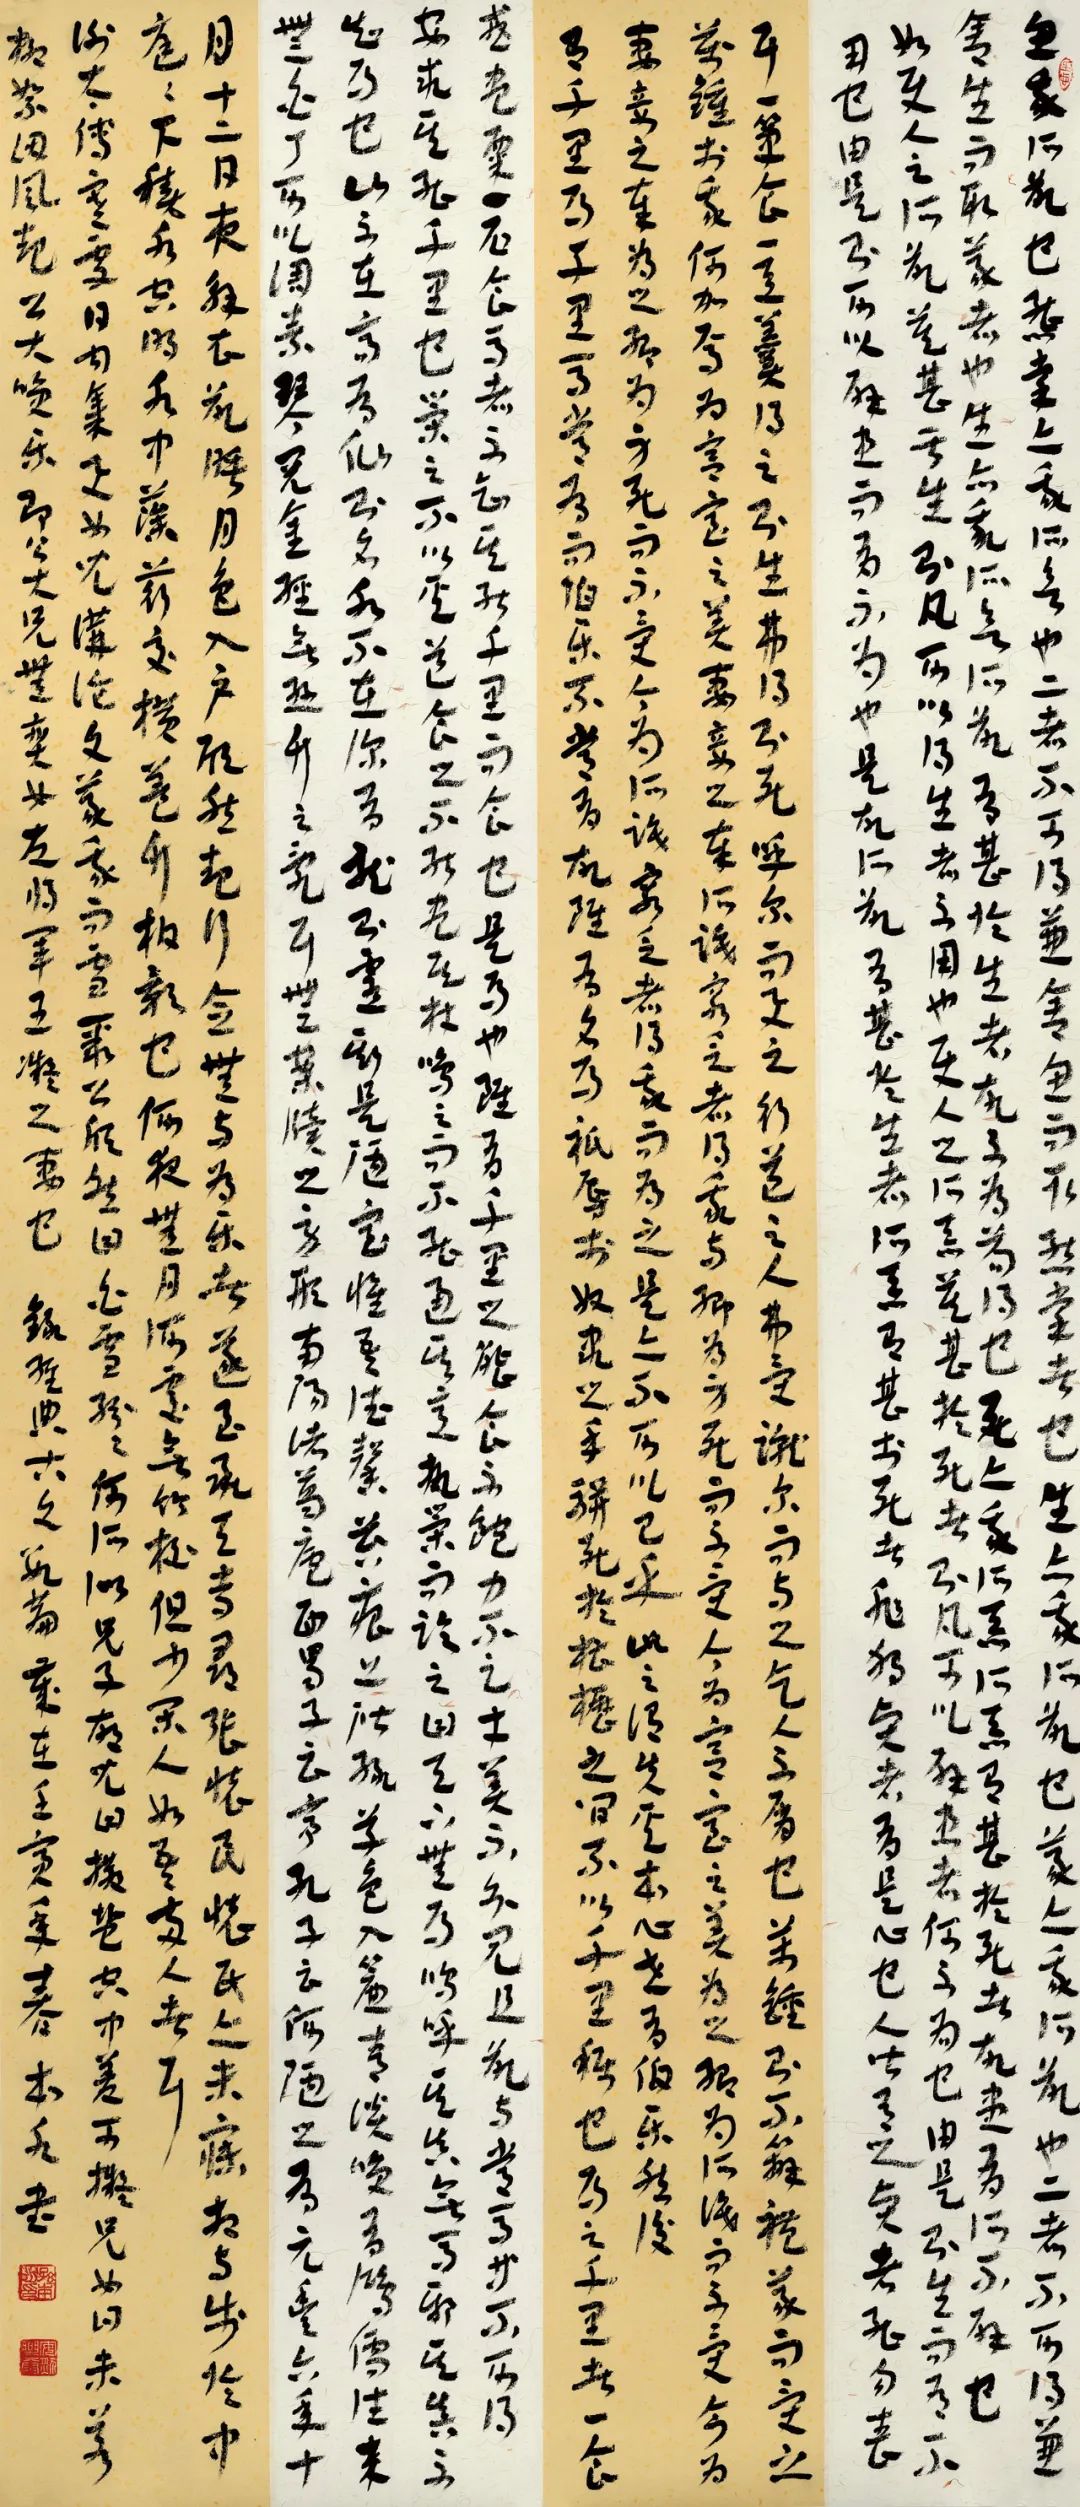 魚我所欲也熊掌亦我所欲也二者不可得兼舍魚而取熊掌者也生亦我所欲也義亦我所欲也二者不可得兼
舍生而取義者也生亦我所欲所欲有甚於生者故不為苟得也死亦我所惡所惡有甚於死者故患有所不避也
如使人之所欲莫甚於生則凡可以得生者不用也使人之所惡莫甚於死者則凡可以避患者何不為也由是則生而有不
用也由是則可以避患而有不為也是故所欲有甚於生者所惡有甚於死者非獨賢者有是心也人皆有之賢者能勿喪
耳一簞食一豆羹得之則生弗得則死呼爾而與之行道之人弗受蹴爾而與之乞人不屑也萬鍾則不辨禮義而受之
萬鍾於我何加焉為宮室之美妻妾之奉所識窮乏者得我與鄉為身死而不受今為宮室之美為之鄉為所識而不受今為
妻妾之奉為之鄉為身死而不受今為所識窮乏者得我而為之是亦不可以已乎此之謂失其本心世有伯樂然後
有千里馬千里馬常有而伯樂不常有故雖有名馬祇辱於奴隸之手駢死於槽櫪之間不以千里稱也馬之千里者一食
或盡粟一石食馬者不知其能千里而食也是馬也雖有千里之能食不飽力不足才美不外見且欲與常馬等不可得
安求其能千里也策之不以其道食之不能盡其材鳴之而不能通其意執策而臨之曰天下無馬嗚呼其真無馬邪其真不
知馬也山不在高有仙則名水不在深有龍則靈斯是陋室惟吾德馨苔痕上階綠草色入簾青談笑有鴻儒往來
無白丁可以調素琴閱金經無絲竹之亂耳無案牘之勞形南陽諸葛廬西蜀子云亭孔子云何陋之有元豐六年十
月十二日夜解衣欲睡月色入戶欣然起行念無與為樂者遂至承天寺尋張懷民懷民亦未寢相與步於中
庭庭下積水空明水中藻荇交橫蓋竹柏影也何夜無月何處無竹柏但少閑人如吾兩人者耳
謝太傅寒雪日內集與兒女講論文義俄而雪驟公欣然曰白雪紛紛何所似兄子胡兒曰撒鹽空中差可擬兄女曰未若
柳絮因風起公大笑樂即公大兄無奕女左將軍王凝之妻也 錄經典古文數篇歲在壬寅年春 書